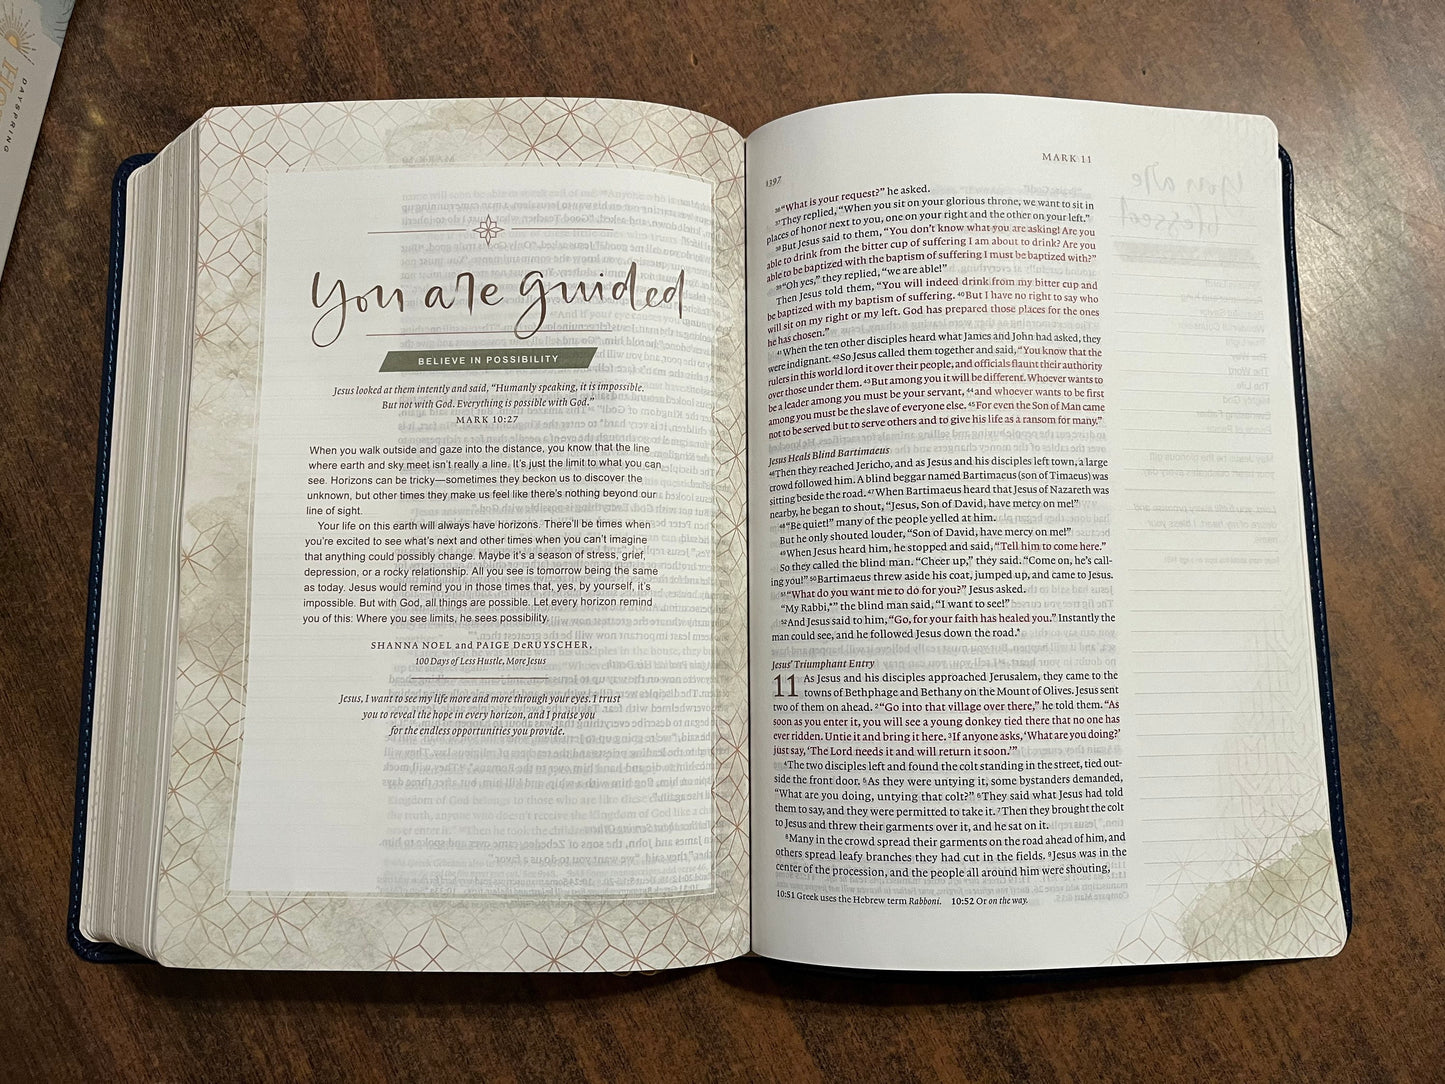 DAYSPRING
You are guided
BELIEVE IN POSSIBILITY
Jesus looked at them intently and said, “Humanly speaking, it is impossible.
But not with God. Everything is possible with God.”
MARK 10:27
When you walk outside and gaze into the distance, you know that the line
where earth and sky meet isn’t really a line. It’s just the limit to what you can
see. Horizons can be tricky—sometimes they beckon us to discover the
unknown, but other times they make us feel like there’s nothing beyond our
line of sight.
Your life on this earth will always have horizons. There’ll be times when
you’re excited to see what’s next and other times when you can’t imagine
that anything could possibly change. Maybe it’s a season of stress, grief,
depression, or a rocky relationship. All you see is tomorrow being the same
as today. Jesus would remind you in those times that, yes, by yourself, it’s
impossible. But with God, all things are possible. Let every horizon remind
you of this: Where you see limits, he sees possibility.
SHANNA NOEL and PAIGE DeRUYSCHER,
100 Days of Less Hustle, More Jesus
Jesus, I want to see my life more and more through your eyes. I trust
you to reveal the hope in every horizon, and I praise you
for the endless opportunities you provide.
1397
MARK 11
36 “What is your request?” he asked.
37 They replied, “When you sit on your glorious throne, we want to sit in
places of honor next to you, one on your right and the other on your left.”
38 But Jesus said to them, “You don’t know what you are asking! Are you
able to drink from the bitter cup of suffering I am about to drink? Are you
able to be baptized with the baptism of suffering I must be baptized with?”
39 “Oh yes,” they replied, “we are able!”
Then Jesus told them, “You will indeed drink from my bitter cup and
be baptized with my baptism of suffering. 40 But I have no right to say who
will sit on my right or my left. God has prepared those places for the ones
he has chosen.”
41 When the ten other disciples heard what James and John had asked, they
were indignant. 42 So Jesus called them together and said, “You know that the
rulers in this world lord it over their people, and officials flaunt their authority
over those under them. 43 But among you it will be different. Whoever wants to
be a leader among you must be your servant, 44 and whoever wants to be first
among you must be the slave of everyone else. 45 For even the Son of Man came
not to be served but to serve others and to give his life as a ransom for many.”
Jesus Heals Blind Bartimaeus
46 Then they reached Jericho, and as Jesus and his disciples left town, a large
crowd followed him. A blind beggar named Bartimaeus (son of Timaeus) was
sitting beside the road. 47 When Bartimaeus heard that Jesus of Nazareth was
nearby, he began to shout, “Jesus, Son of David, have mercy on me!”
48 “Be quiet!” many of the people yelled at him.
But he only shouted louder, “Son of David, have mercy on me!”
49 When Jesus heard him, he stopped and said, “Tell him to come here.”
So they called the blind man. “Cheer up,” they said. “Come on, he’s call-
ing you!” 50 Bartimaeus threw aside his coat, jumped up, and came to Jesus.
51 “What do you want me to do for you?” Jesus asked.
“My Rabbi,*” the blind man said, “I want to see!”
52 And Jesus said to him, “Go, for your faith has healed you.” Instantly the
man could see, and he followed Jesus down the road.*
Jesus’ Triumphant Entry
11 As Jesus and his disciples approached Jerusalem, they came to the
towns of Bethphage and Bethany on the Mount of Olives. Jesus sent
two of them on ahead. 2 “Go into that village over there,” he told them. “As
soon as you enter it, you will see a young donkey tied there that no one has
ever ridden. Untie it and bring it here. 3 If anyone asks, ‘What are you doing?’
just say, ‘The Lord needs it and will return it soon.’”
4 The two disciples left and found the colt standing in the street, tied out-
side the front door. 5 As they were untying it, some bystanders demanded,
“What are you doing, untying that colt?” 6 They said what Jesus had told
them to say, and they were permitted to take it. 7 Then they brought the colt
to Jesus and threw their garments over it, and he sat on it.
8 Many in the crowd spread their garments on the road ahead of him, and
others spread leafy branches they had cut in the fields. 9 Jesus was in the
center of the procession, and the people all around him were shouting,
10:51 Greek uses the Hebrew term Rabboni. 10:52 Or on the way.